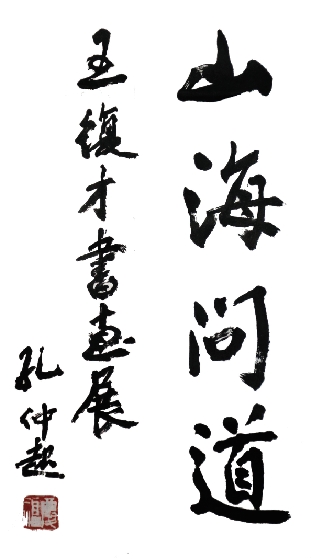 山海问道
王復才書画展
孔仲起